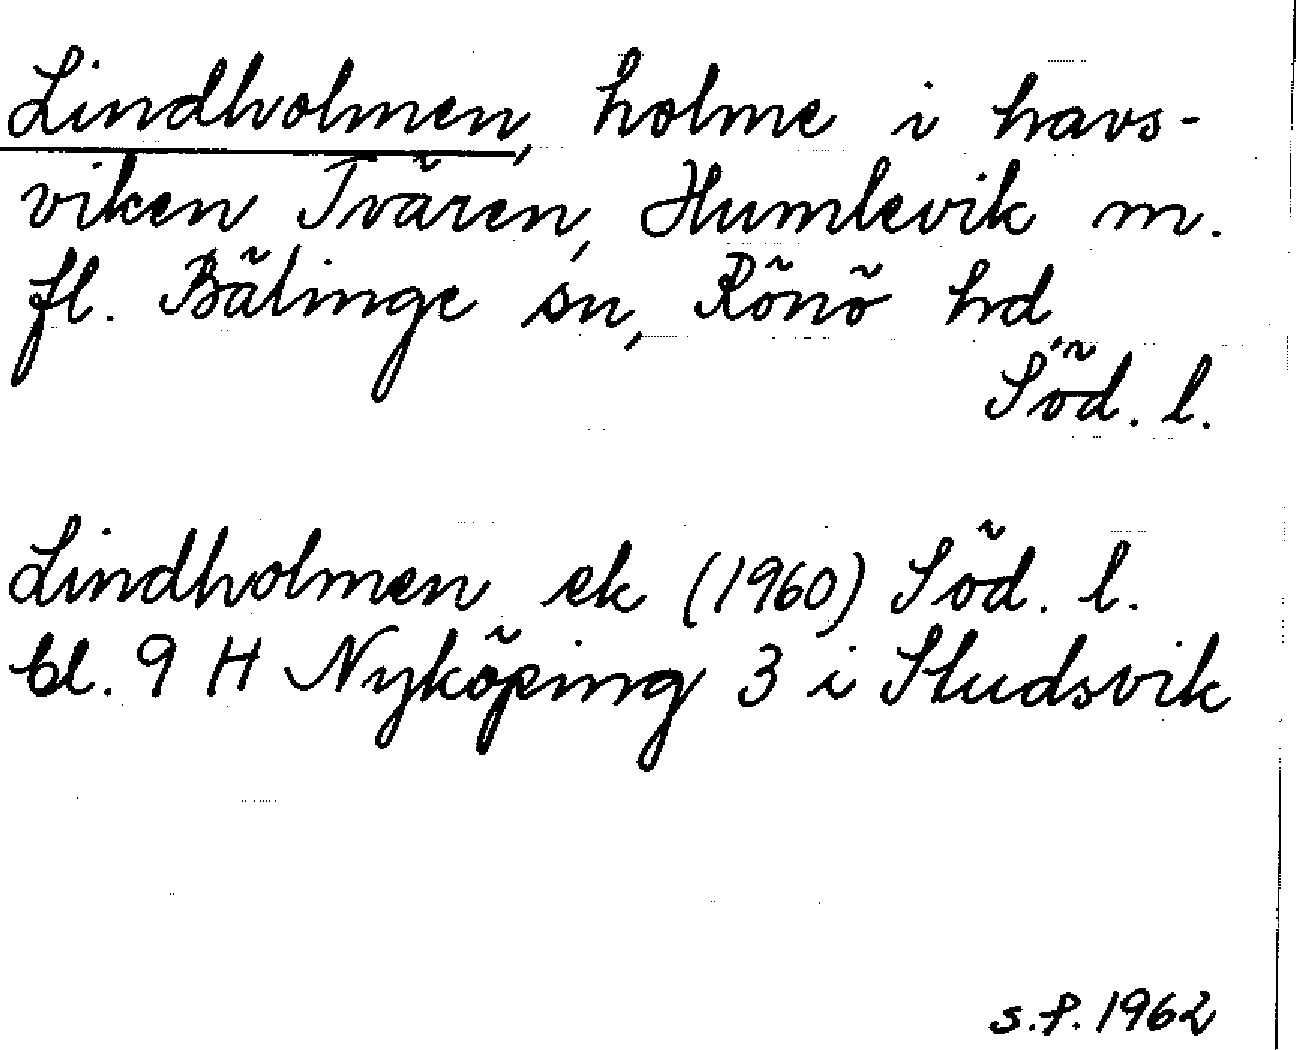 Lindholmen, holme i havs-
viken Tvären, Humlevik m.
fl. Bälinge sn, Rönö hd,
Söd. l.
Lindholmen ek (1960) Söd. l.
bl. 9 H Nyköping 3 i Studsvik
s.f. 1962